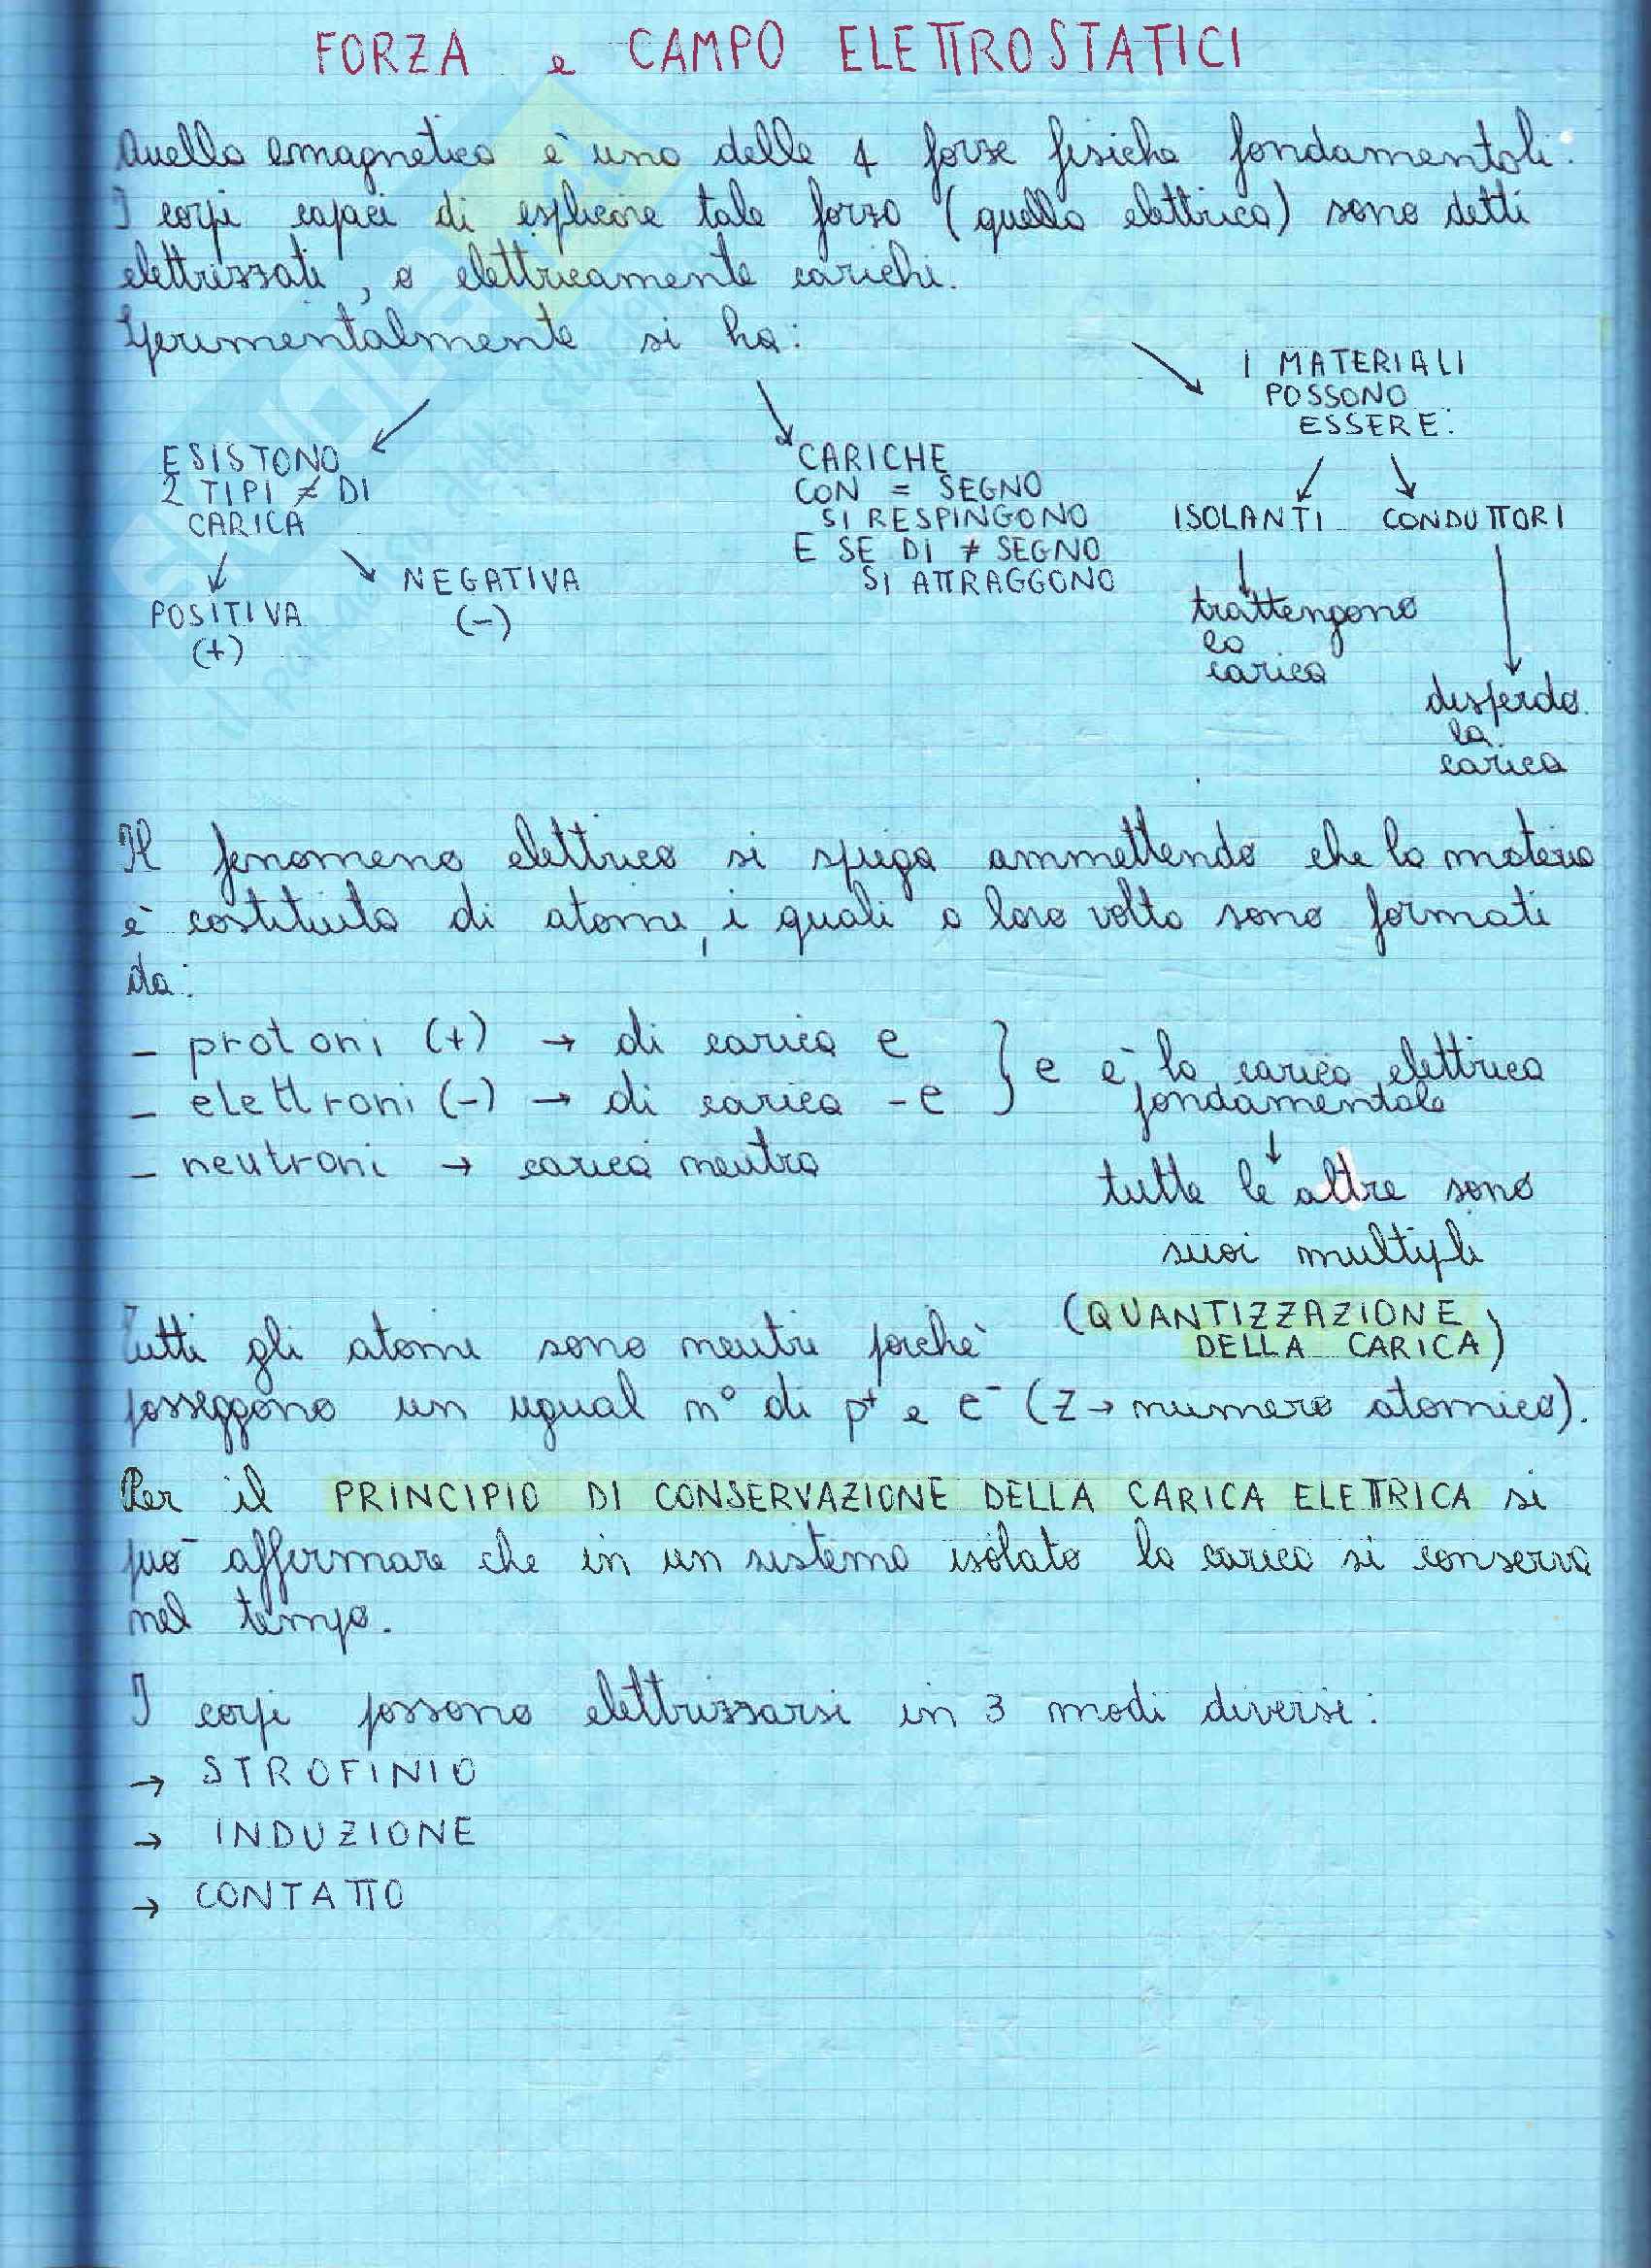 FORZA e CAMPO ELETTROSTATICI
Quella emagnetica è una delle 4 forze fisiche fondamentali.
I corpi capaci di esplicare tale forza (quella elettrica) sono detti
elettrizzati, o elettricamente carichi.
Sperimentalmente si ha:
ESISTONO
2 TIPI ≠ DI
CARICA
POSITIVA
(+)
NEGATIVA
(-)
CARICHE
CON = SEGNO
SI RESPINGONO
E SE DI ≠ SEGNO
SI ATTRAGGONO
I MATERIALI
POSSONO
ESSERE:
ISOLANTI CONDUTTORI
trattengono
la
carica
disperdo
la
carica
Il fenomeno elettrico si spiega ammettendo che la materia
è costituita di atomi, i quali a loro volta sono formati
da:
- protoni (+) → di carica e
- elettroni (-) → di carica -e
- neutroni → carica neutra
} e è la carica elettrica
fondamentale
↓
tutte le altre sono
suoi multipli
(QUANTIZZAZIONE
DELLA CARICA)
Tutti gli atomi sono neutri perché
posseggono un ugual n° di p⁺ e e⁻ (Z → numero atomico).
Per il PRINCIPIO DI CONSERVAZIONE DELLA CARICA ELETTRICA si
può affermare che in un sistema isolato la carica si conserva
nel tempo.
I corpi possono elettrizzarsi in 3 modi diversi:
→ STROFINIO
→ INDUZIONE
→ CONTATTO